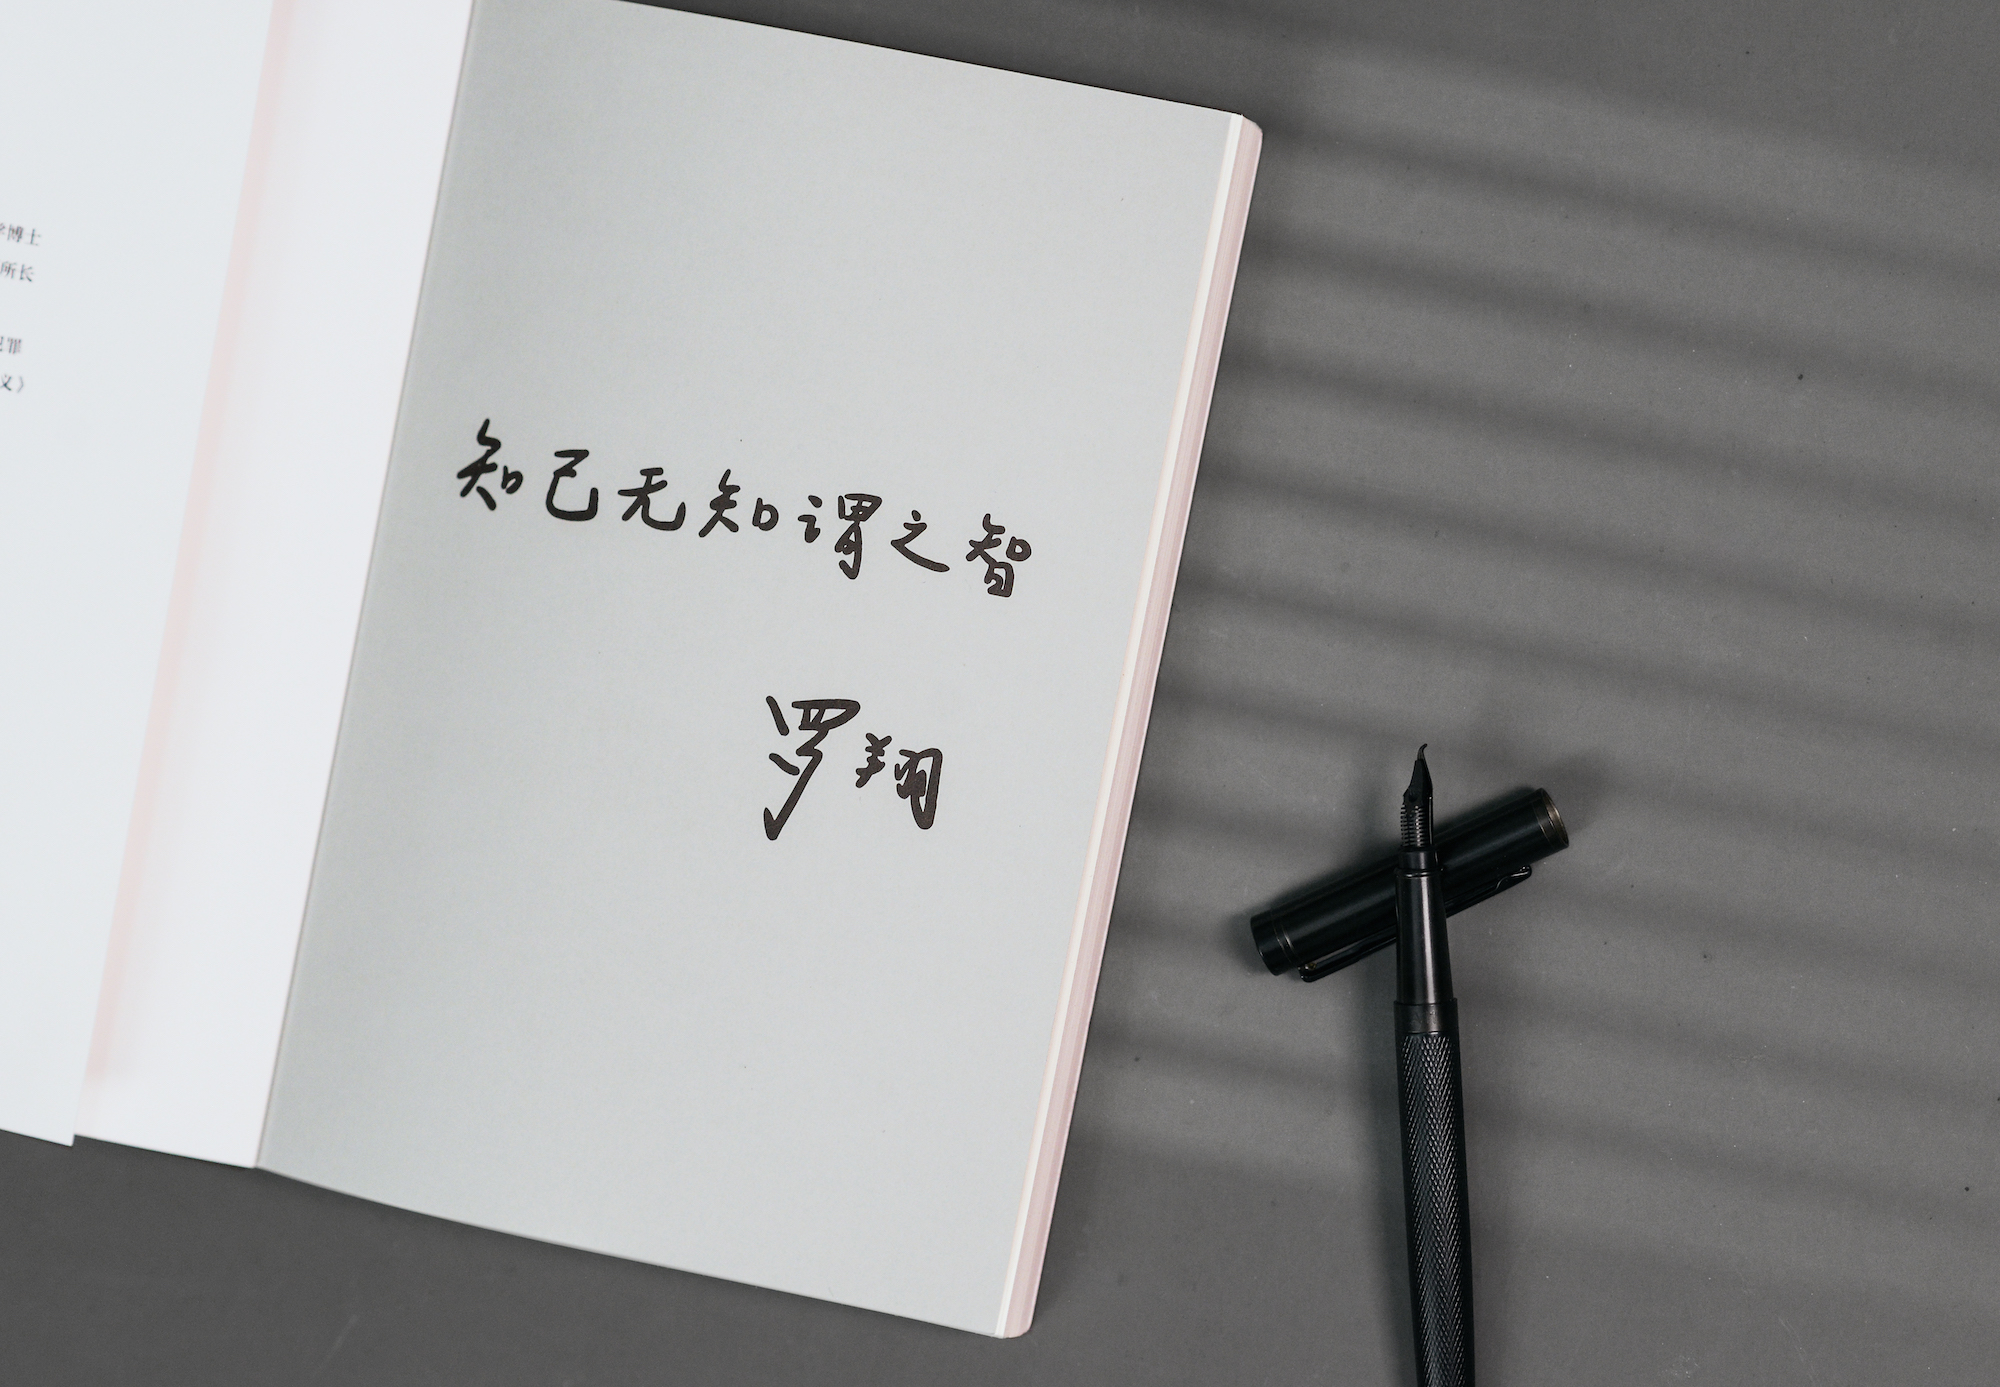 学博士
所长
犯罪
义》
知己无知谓之智
罗翔